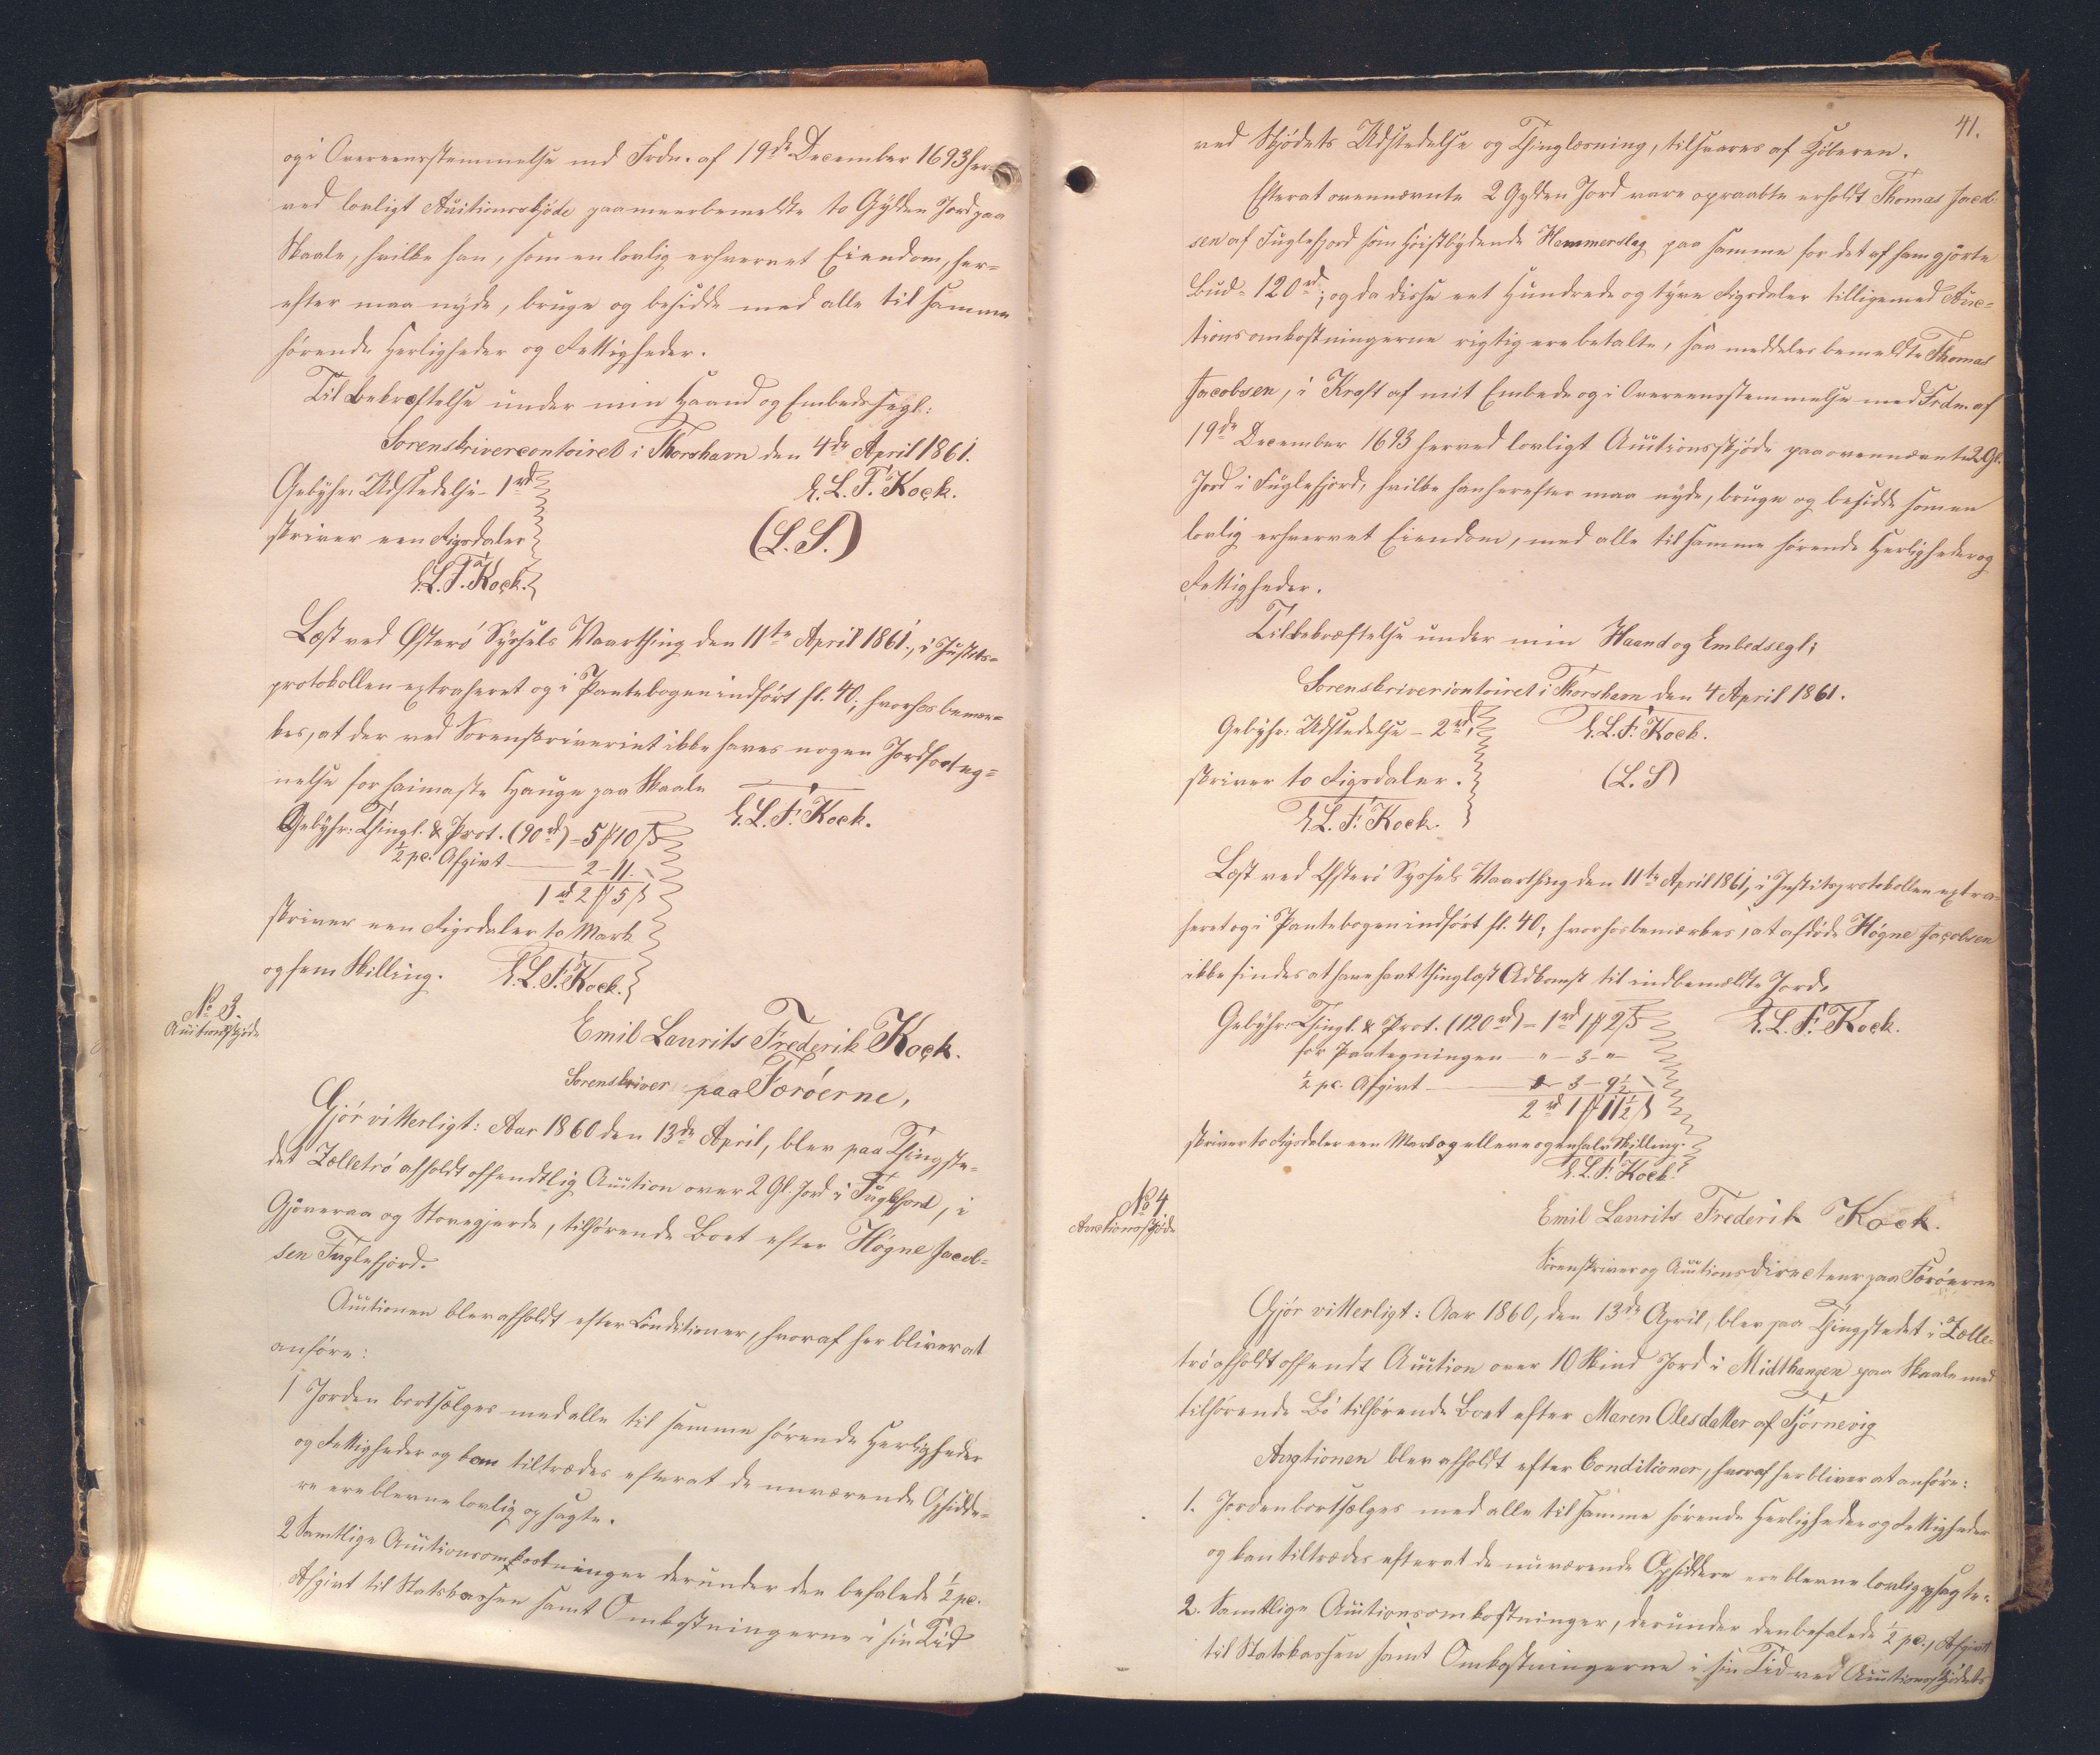 og i Overeensstemmelse med Frdn. af 19de December 1693 her-
ved lovligt Auctionsskjøde paa meerbemeldte to Gylden Jord paa
Skaale, hvilke han, som en lovlig erhvervet Eiendom, her-
efter maa nyde, bruge og besidde med alle til samme
hørende Herligheder og Rettigheder.
Til Bekræftelse under min Haand og Embedssegl:
Sorenskrivercontoiret i Thorshavn den 4de April 1861.
Gebyhr: Udstedelse - 1 rd
E. L. F. Kock.
skriver een Rigsdaler
(L. S.)
E. L. F. Kock.
Læst ved Østerø Syssels Vaarthing den 11te April 1861., i Justits-
protokollen extraheret og i Pantebogen indført fl. 40; hvorhos bemær-
kes, at der ved Sorenskriveriet ikke haves nogen Jordforteg-
nelse for Haimaste Hauge paa Skaale
E. L. F. Kock.
Gebyhr: Thingl. & Prot. (90 rd) - 5 # 10 ß
½ pc. Afgivt 2 - 11.
1 rd 2 # 5 ß
skriver een Rigsdaler to Mark
og fem Skilling. E. L. F. Kock.
No 3.
Auctionsskjøde
Emil Laurits Frederik Kock.
Sorenskriver paa Færøerne,
Gjør vitterligt: Aar 1860 den 13de April, blev paa Thingste-
det Zelletrø afholdt offendtlig Auction over 2 Gl. Jord i Fuglefjord, i
Gjøveraa og Storegjerde, tilhørende Boet efter Høgne Jacob-
sen Fuglefjord.
Auctionen blev afholdt efter Conditioner, hvoraf her bliver at
anføre:
1 Jorden bortsælges med alle til samme hørende Herligheder
og Rettigheder og kan tiltrædes efterat de nuværende Opsidde-
re ere blevne lovlig opsagte.
2 Samtlige Auctionsomkostninger derunder den befalede ½ pc.
Afgivt til Statskassen samt Omkostningerne i sin Tid
41.
ved Skjødets Udstedelse og Thinglæsning, tilsvares af Kjøberen.
Efterat ovennævnte 2 Gylden Jord vare opraabte erholdt Thomas Jacob-
sen af Fuglefjord som Høistbydende Hammerslag paa samme for det af ham gjorte
Bud - 120 rd; og da disse eet Hundrede og tyve Rigsdaler tilligemed Auc-
tionsomkostningerne rigtig ere betalte, saa meddeles bemeldte Thomas
Jacobsen, i Kraft af mit Embede og i Overeensstemmelse med Frdn. af
19de December 1693 herved lovligt Auctionsskjøde paa ovennævnte 2 Gl.
Jord i Fuglefjord, hvilke han herefter maa nyde, bruge og besidde som en
lovlig erhvervet Eiendom, med alle til samme hørende Herligheder og
Rettigheder.
Til Bekræftelse under min Haand og Embedsegl;
Sorenskrivercontoiret i Thorshavn den 4 April 1861.
Gebyhr: Udstedelse - 2 rd,
E. L. F. Kock.
skriver to Rigsdaler.
(L. S)
E. L. F. Kock.
Læst ved Østerø Syssels Vaarthing den 11te April 1861, i Justitsprotokollen extra-
heret og i Pantebogen indført fl. 40; hvorhos bemærkes, at afdøde Høgne Jacobsen
ikke findes at have havt thinglæst Adkomst til indbemældte Jord.
Gebyhr: Thingl. & Prot. (120 rd) - 1 rd 1 # 2 ß
E. L. F. Kock.
for Paategningen - " - 3 - "
½ pc. Afgivt 3 - 9½
2 rd 1 # 11½ ß
skriver to Rigsdaler een Mark og elleve og en halv Skilling.
E. L. F. Kock.
No 4
Auctionsskjøde
Emil Laurits Frederik Kock.
Sorenskriver og Auctionsdirecteur paa Færøerne
Gjør vitterligt: Aar 1860, den 13de April, blev paa Thingstedet i Zelle-
trø afholdt offendt Auction over 10 Skind Jord i Midthaugen paa Skaale med
tilhørende Bø tilhørende Boet efter Maren Olesdatter af Tjørnevig
Auctionen blev afholdt efter Conditioner, hvoraf her bliver at anføre:
1. Jorden bortsælges med alle til samme hørende Herligheder og Rettigheder
og kan tiltrædes efterat de nuværende Opsiddere ere blevne lovlig opsagte.
2. Samtlige Auctionsomkostninger, derunder den befalede ½ pc., Afgivt
til Statskassen samt Omkostningerne i sin Tid ved Auctionsskjødets